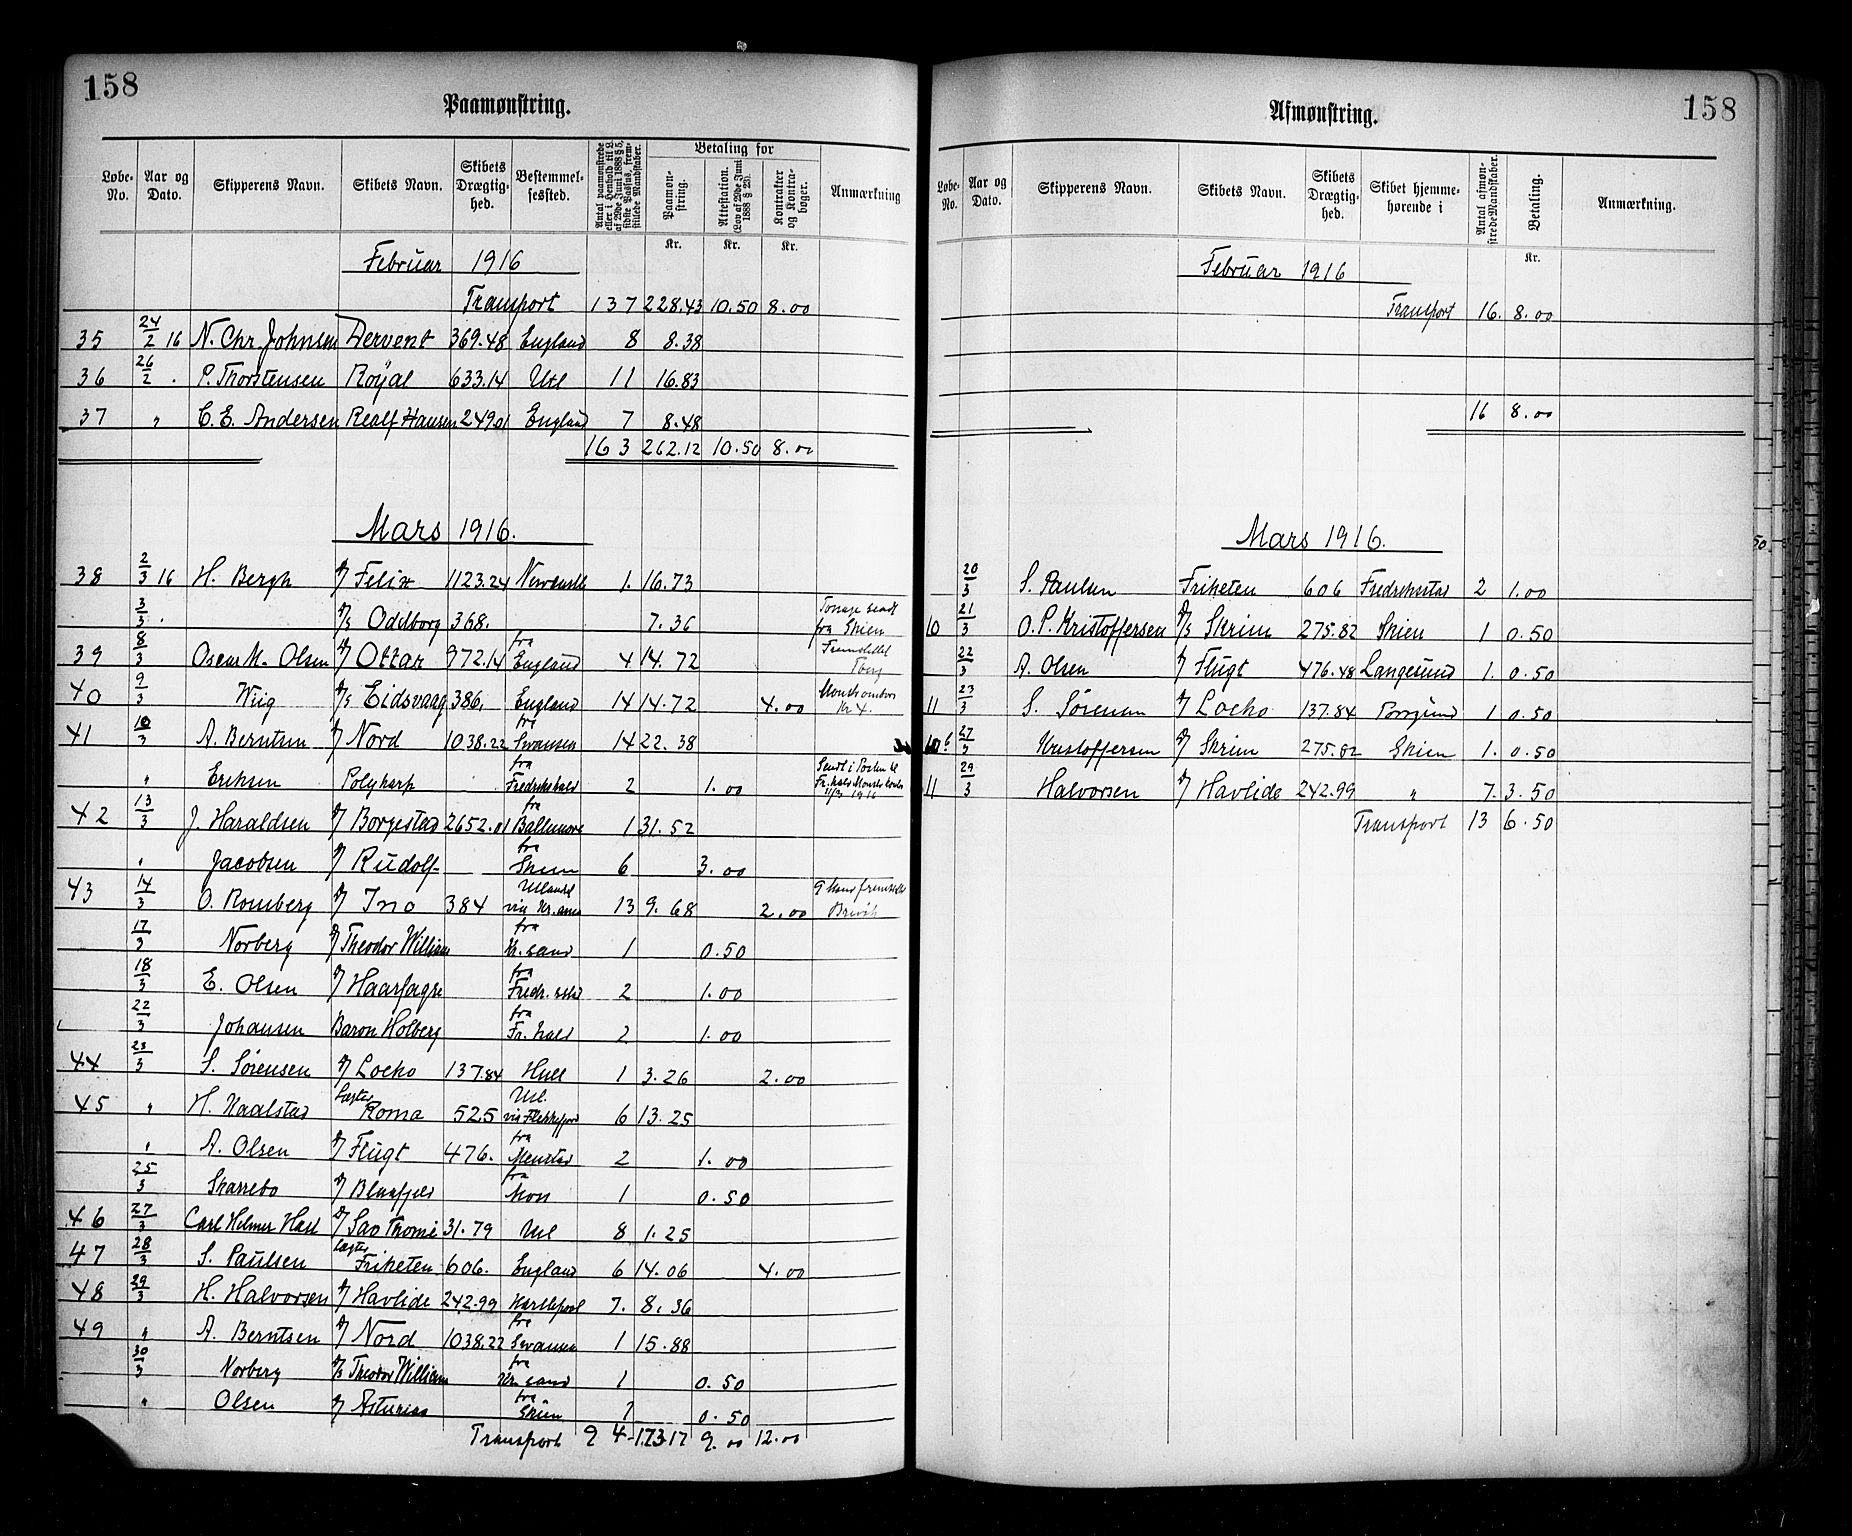 158
Paamønstring.
Løbe-No. | Aar og Dato. | Skipperens Navn. | Skibets Navn. | Skibets Drægtighed. | Bestemmelsessted. | Antal paamønstrede eller i Henhold til L. af 29de Juni 1888 § 5, sidste Passus, fremstillede Mandskaber. | Betaling for Paamønstring. Kr. | Attestation. (Lov af 29de Juni 1888 § 23). Kr. | Kontrakter og Kontrabøger. Kr. | Anmærkning
Februar 1916
Transport 137 228.43 10.50 8.00
35 24/2 16 N. Chr. Johnsen Dervent 369.48 England 8 8.38
36 26/2 . P. Thorstensen Røyal 633.14 Utl 11 16.83
37 " C. E. Andersen Realf Hansen 249.01 England 7 8.48
163 262.12 10.50 8.00
Mars 1916.
38 2/3 16 H. Bergh D/ Felix 1123.24 Newcastle 1. 16.73
3/3 . D/s Odelborg 368. 7.36 Tonage sendt fra Skien
39 8/3 Oscar M. Olsen D/ Ottar 972.14 fra England 4 14.72 Fremstillet Tbrg
40 9/3 Wiig D/s Eidsvaag 386. England 14 14.72 4.00 Kr 4.
41 10/3 A. Berntsen D/ Nord 1038.22 fra Swansea 14 22.38
" Eriksen Polykarp fra Fredrikshald 2 1.00 Sendt i Posten til Fr.hald 11/3 1916
42 13/3 J. Haraldsen D/ Borgestad 2652.01 fra Baltimore 1 31.52
" Jacobsen D/ Rudolf fra Skien 6 3.00
43 14/3 O. Romberg D/ Ino 384 Utlandet via Kr.sand 13 9.68 2.00 9 Mand fremstillet Brevik
17/3 Norberg D/ Theodor William fra Kr.sand 1 0.50
18/3 E. Olsen D/ Haarfagre fra Fredr. stad 2 1.00
22/3 Johansen Baron Holberg fra Fr. hald 2 1.00
44 23/3 S. Sørensen D/ Locko 137.84 Hull 1 3.26 2.00
45 " H. Naalstad Lægter Roma 525 Utl. via Flekkefjord 6 13.25
" A. Olsen D/ Flugt 476. fra Menstad 2 1.00
25/3 Skarrebo D/ Blaafjeld fra Moss 1 0.50
46 27/3 Carl Helmer Hall D/ Sao Thomé 31.79 Utl 8 1.25
47 28/3 S. Paulsen Lægter Friheten 606. England 6 14.06 4.00
48 29/3 H. Halvorsen D/ Havlide 242.99 Hartlepool 7. 8.36
49 " A. Berntsen D/ Nord 1038.22 fra Swansea 1 15.88
30/3 Norberg D/s Theodor William fra Kr. sand 1 0.50
" Olsen D/ Asturias fra Skien 1 0.50
Transport 94 173.17 9.00 12.00
158
Afmønstring.
Løbe-No. | Aar og Dato. | Skipperens Navn. | Skibets Navn. | Skibets Drægtighed. | Skibet hjemmehørende i | Antal afmønstrede Mandskaber. | Betaling. Kr. | Anmærkning.
Februar 1916
Transport 16. 8.00
16 8.00
Mars 1916.
20/3 S. Paulsen Friheten 606 Fredrikstad 2 1.00
10 21/3 O. P. Kristoffersen D/s Skrim 275.82 Skien 1 0.50
22/3 A. Olsen D/ Flugt 476.48 Langesund 1. 0.50
11 23/3 S. Sørensen D/ Locko 137.84 Porsgrund 1 0.50
27/3 Kristoffersen D/ Skrim 275.82 Skien 1. 0.50
11 29/3 Halvorsen D/ Havlide 242.99 " 7. 3.50
Transport 13 6.50